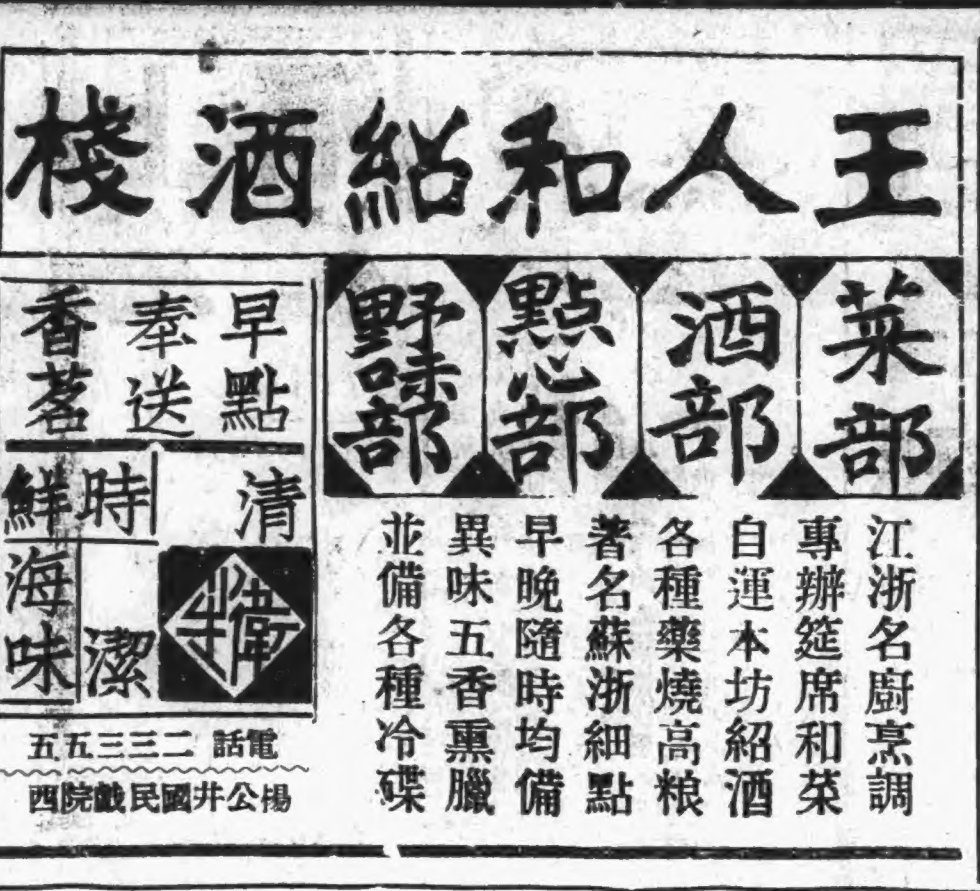 王人和紹酒棧
菜部
酒部
點心部
野味部
江浙名廚烹調
專辦筵席和菜
自運本坊紹酒
各種藥燒高粮
著名蘇浙細點
早晚隨時均備
異味五香熏臘
並備各種冷碟
早點
奉送
香茗
清潔
衛生
時鮮
海味
電話 二三三五五
楊公井國民戲院西